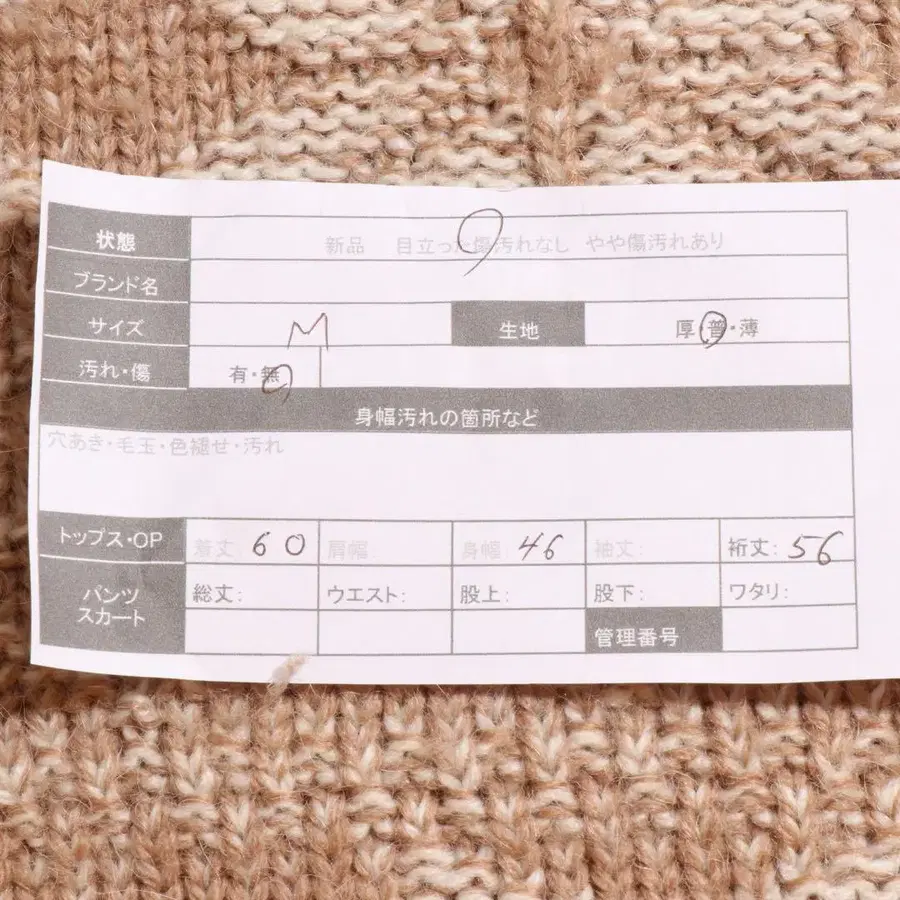 状態 新品 目立った傷汚れなし やや傷汚れあり
ブランド名
サイズ M 生地 厚・普・薄
汚れ・傷 有・無
身幅汚れの箇所など
穴あき・毛玉・色褪せ・汚れ
トップス・OP 着丈: 60 肩幅: 身幅: 46 袖丈: 裄丈: 56
パンツ スカート 総丈: ウエスト: 股上: 股下: ワタリ:
管理番号